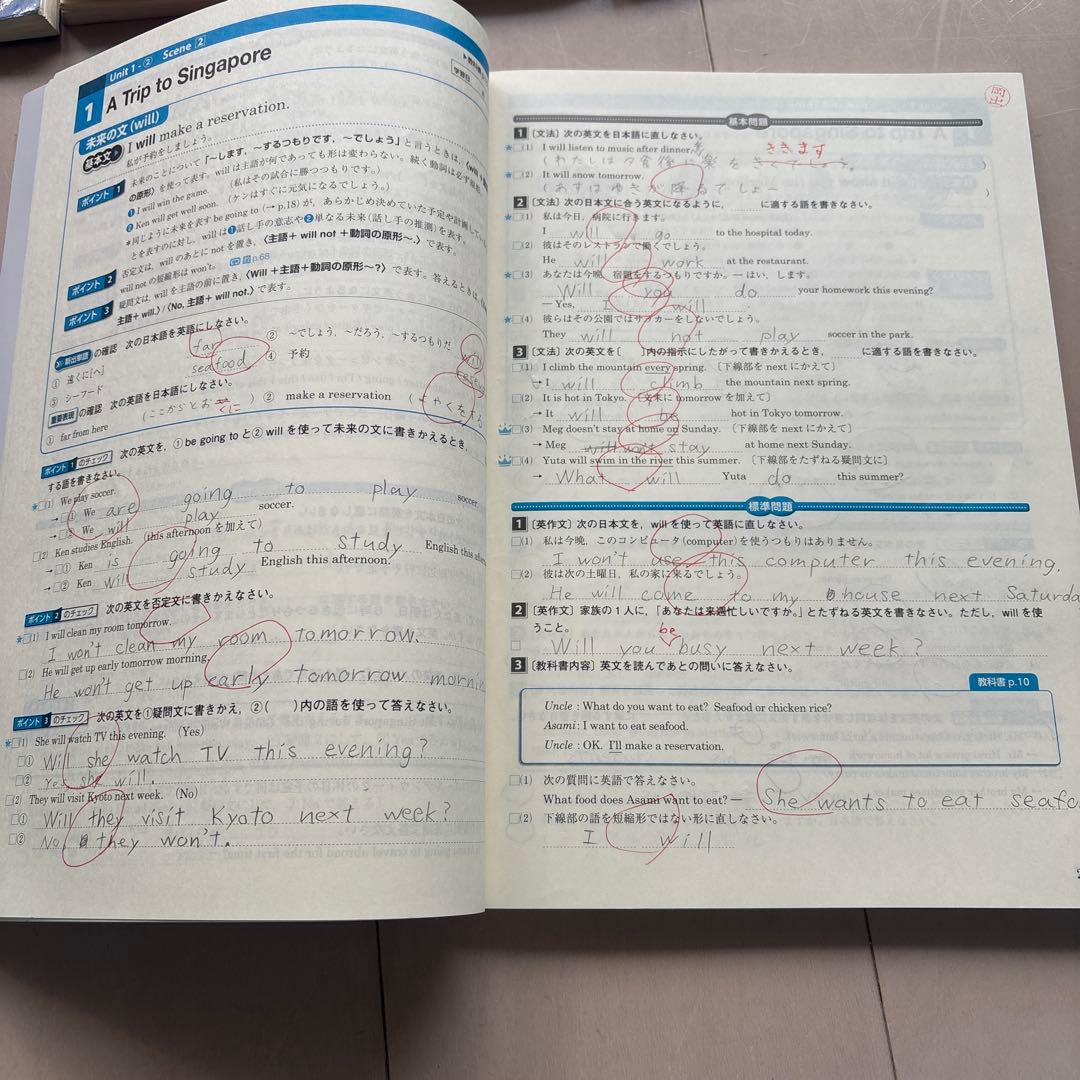 Unit 1-② Scene ②
1 A Trip to Singapore
学習日
未来の文(will)
基本文 I will make a reservation.
私が予約をしましょう。
ポイント1 未来のことについて「〜します、〜するつもりです、〜でしょう」と言うときは、〈will+
の原形〉を使って表す。willは主語が何であっても形は変わらない。続く動詞は必ず原形
❶ I will win the game. (私はその試合に勝つつもりです。)
❷ Ken will get well soon. (ケンはすぐに元気になるでしょう。)
*同じように未来を表すbe going to (→p.18)が、あらかじめ決めていた予定や計画している
とを表すのに対し、willは❶話し手の意志や❷単なる未来(話し手の推測)を表す。
ポイント2 否定文は、willのあとにnotを置き、〈主語+will not+動詞の原形〜.〉で表す。
will notの短縮形はwon't。 p.68
ポイント3 疑問文は、willを主語の前に置き、〈Will+主語+動詞の原形〜?〉で表す。答えるときは、
主語+will.〉/〈No, 主語+will not.〉で表す。
新出単語 の確認 次の日本語を英語にしなさい。
① 遠くに[へ] far ② 〜でしょう、〜だろう、〜するつもりだ will
③ シーフード seafood ④ 予約
重要表現 の確認 次の英語を日本語にしなさい。
① far from here (ここからとおくに) ② make a reservation (よやくをする
ポイント1 のチェック 次の英文を、①be going toと②willを使って未来の文に書きかえるとき、
する語を書きなさい。
★□(1) We play soccer.
→□① We are going to play soccer.
→□② We will play soccer.
□(2) Ken studies English. (this afternoonを加えて)
→□① Ken is going to study English this afte
→□② Ken will study English this afternoon.
ポイント2 のチェック 次の英文を否定文に書きかえなさい。
★□(1) I will clean my room tomorrow.
I won't clean my room tomorrow.
□(2) He will get up early tomorrow morning.
He won't get up early tomorrow mornin
ポイント3 のチェック 次の英文を①疑問文に書きかえ、②( )内の語を使って答えなさい。
★□(1) She will watch TV this evening. (Yes)
□① Will she watch TV this evening?
□② Yes she will.
□(2) They will visit Kyoto next week. (No)
□① Will they visit Kyoto next week?
□② No they won't.
基本問題
1 [文法] 次の英文を日本語に直しなさい。
★□(1) I will listen to music after dinner. ききます
(わたしは夕食後に楽を
□(2) It will snow tomorrow.
(あすはゆきが降るでしょー )
2 [文法] 次の日本文に合う英文になるように、 に適する語を書きなさい。
★□(1) 私は今日、病院に行きます。
I will go to the hospital today.
□(2) 彼はそのレストランで働くでしょう。
He will work at the restaurant.
★□(3) あなたは今晩、宿題をするつもりですか。—はい、します。
Will you do your homework this evening?
— Yes, I will
★□(4) 彼らはその公園ではサッカーをしないでしょう。
They will not play soccer in the park.
3 [文法] 次の英文を〔 〕内の指示にしたがって書きかえるとき、 に適する語を書きなさい。
□(1) I climb the mountain every spring. 〔下線部をnextにかえて〕
→ I will climb the mountain next spring.
□(2) It is hot in Tokyo. 〔文末にtomorrowを加えて〕
→ It will be hot in Tokyo tomorrow.
□(3) Meg doesn't stay at home on Sunday. 〔下線部をnextにかえて〕
→ Meg won't stay at home next Sunday.
□(4) Yuta will swim in the river this summer. 〔下線部をたずねる疑問文に〕
→ What will Yuta do this summer?
標準問題
1 [英作文] 次の日本文を、willを使って英語に直しなさい。
□(1) 私は今晩、このコンピュータ(computer)を使うつもりはありません。
I won't use this computer this evening.
□(2) 彼は次の土曜日、私の家に来るでしょう。
He will come to my house next Saturda
2 [英作文] 家族の1人に、「あなたは来週忙しいですか。」とたずねる英文を書きなさい。ただし、willを使
うこと。
be
□ Will you busy next week?
3 [教科書内容] 英文を読んであとの問いに答えなさい。
教科書 p.10
Uncle : What do you want to eat? Seafood or chicken rice?
Asami : I want to eat seafood.
Uncle : OK. I'll make a reservation.
□(1) 次の質問に英語で答えなさい。
What food does Asami want to eat? — She wants to eat seafo
□(2) 下線部の語を短縮形ではない形に直しなさい。
I will